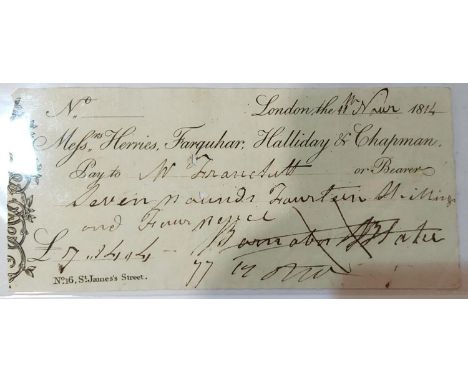 No London, the 11th Novr 1814
Messrs Herries, Farquhar, Halliday & Chapman,
Pay to Mr or Bearer
Seven pounds Fourteen Shillings
and Four pence
£ 7.14.4 Blake
No 16, St James's Street.